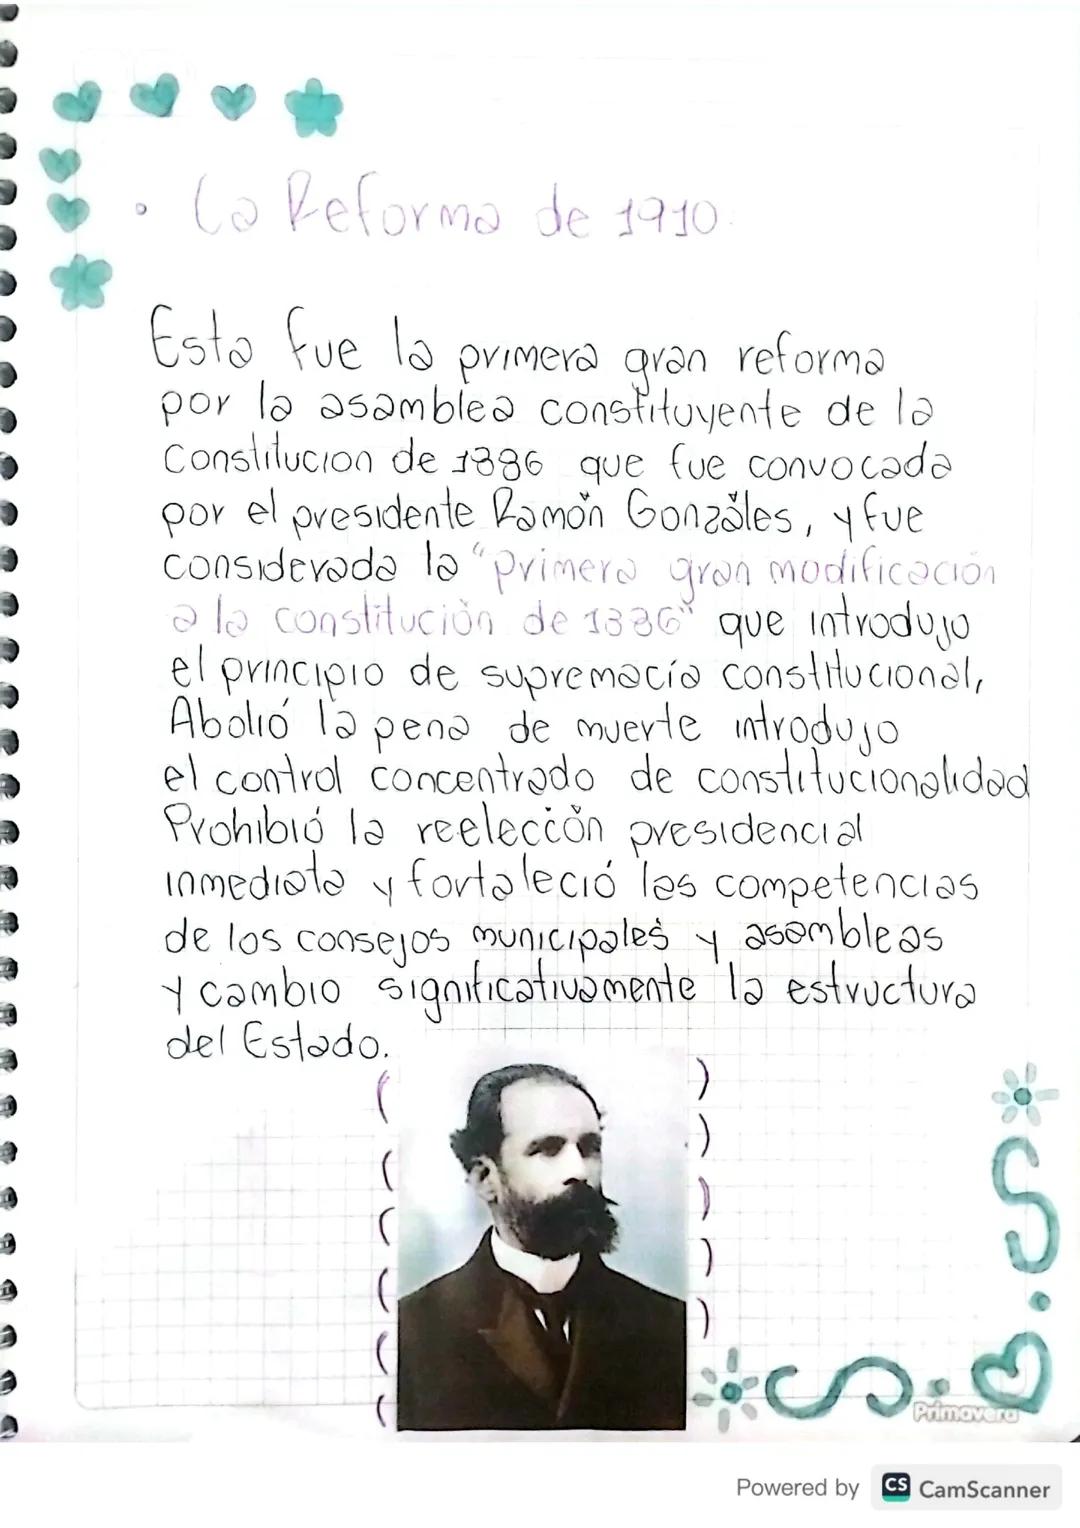 • La Reforma de 1910.
Esta fue la primera gran reforma
por la asamblea constituyente de la
Constitucion de 1886 que fue convocada
por el presidente Ramón Gonzáles, y fue
considerada la "primera gran modificación
a la constitución de 1886" que introdujo
el principio de supremacía constitucional,
Abolió la pena de muerte introdujo
el control concentrado de constitucionalidad
Prohibió la reelección presidencial
inmediata y fortaleció las competencias
de los consejos municipales y asambleas
y cambio significativamente la estructura
del Estado.
Primavera
Powered by CS CamScanner